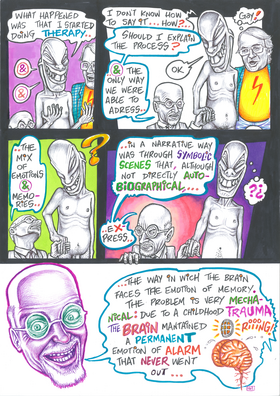 WHAT HAPPENED
WAS THAT I STARTED
DOING THERAPY..
&
&
I DON'T KNOW HOW
TO SAY IT... HOW?..
Gay?
SHOULD I EXPLAIN
THE PROCESS?
OK..
& THE
ONLY WAY
WE WERE
ABLE TO
ADRESS..
..THE
MIX OF
EMOTIONS
& MEMO-
RIES..
?
..IN A NARRATIVE WAY
WAS THROUGH SYMBOLIC
SCENES THAT, ALTHOUGH
NOT DIRECTLY AUTO-
BIOGRAPHICAL...
..EX-
PRESS..
?¿
...THE WAY IN WICH THE BRAIN
FACES THE EMOTION OF MEMORY.
THE PROBLEM IS VERY MECHA-
NICAL: DUE TO A CHILDHOOD TRAUMA
THE BRAIN MANTAINED
A PERMANENT
EMOTION OF ALARM
THAT NEVER WENT
OUT ...